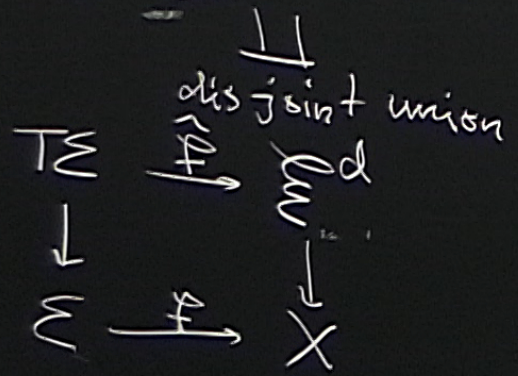 ⊔
disjoint union
TΣ f̂ ξ^d
Σ f X